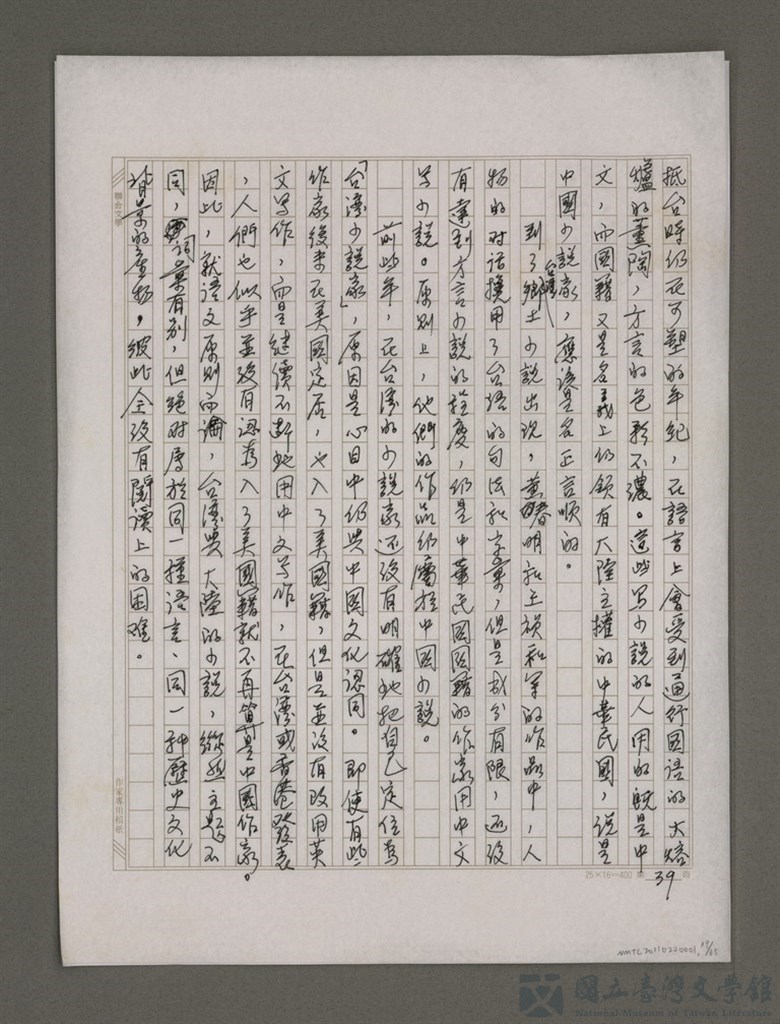 抵台時仍在可塑的年紀，在語言上會受到通行国語的大熔
爐的薰陶，方言的色彩不濃。這些写小說的人用的既是中
文，而國籍又是名義上仍領有大陸主權的中華民國，說是
中國小說家，應該是名正言順的。
到了台灣鄉土小說出現，黃春明和王禎和等的作品中，人
物的对话摻用了台语的句法和字彙，但是成分有限，还没
有達到方言小說的程度，仍是中華民国国籍的作家用中文
写小說。原则上，他們的作品仍屬於中国小說。
前些年，在台湾的小說家还没有明確地把自己定位為
「台湾小說家」，原因是心目中仍與中国文化認同。即使有些
作家後来在美国定居，也入了美国籍，但是並没有改用英
文写作，而是继续不断地用中文写作，在台湾或香港發表
，人們也似乎並没有認為入了美国籍就不再算是中國作家。
因此，就语文原則而論，台湾與大陸的小說，縱然主題不
同，詞彙有別，但絕对屬於同一種语言、同一种歷史文化
背景的產物，彼此全没有閱讀上的困难。
聯合文學
作家專用稿紙
25×16=400 第 39 頁
NMTL20110220001, 15/65
國立臺灣文學館
National Museum of Taiwan Literature